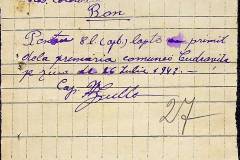 Bon
Pentru 8 l. (opt) lapte primit
dela primăria comunei Eudranita
pe ziua de 26 Iulie 1942. —
Cap.
27